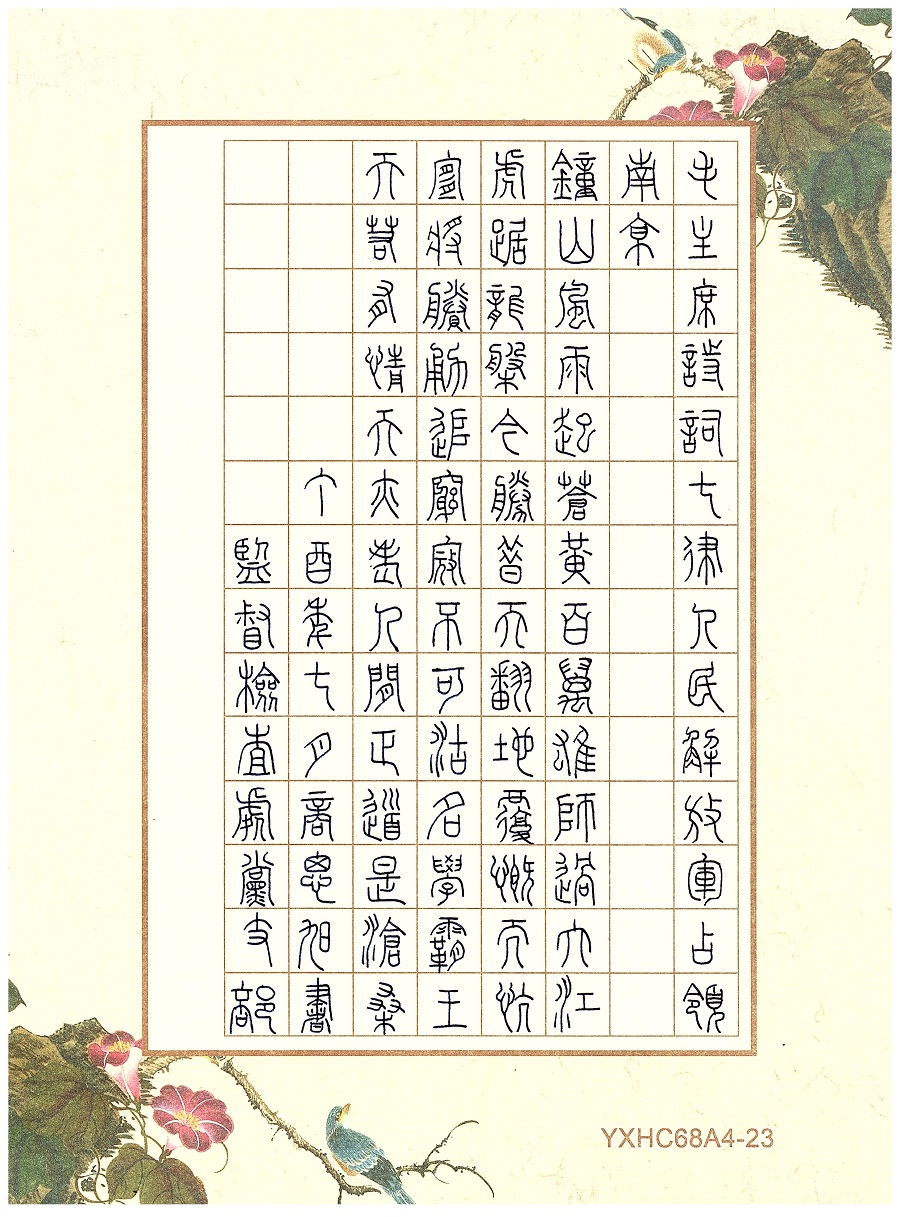 毛主席詩詞七律人民解放軍占領
南京
鐘山風雨起蒼黃百萬雄師過大江
虎踞龍槃今勝昔天翻地覆慨而慷
宜將賸勇追窮寇不可沽名學霸王
天若有情天亦老人間正道是滄桑
丁酉年七月商恩旭書
監督檢查處黨支部
YXHC68A4-23